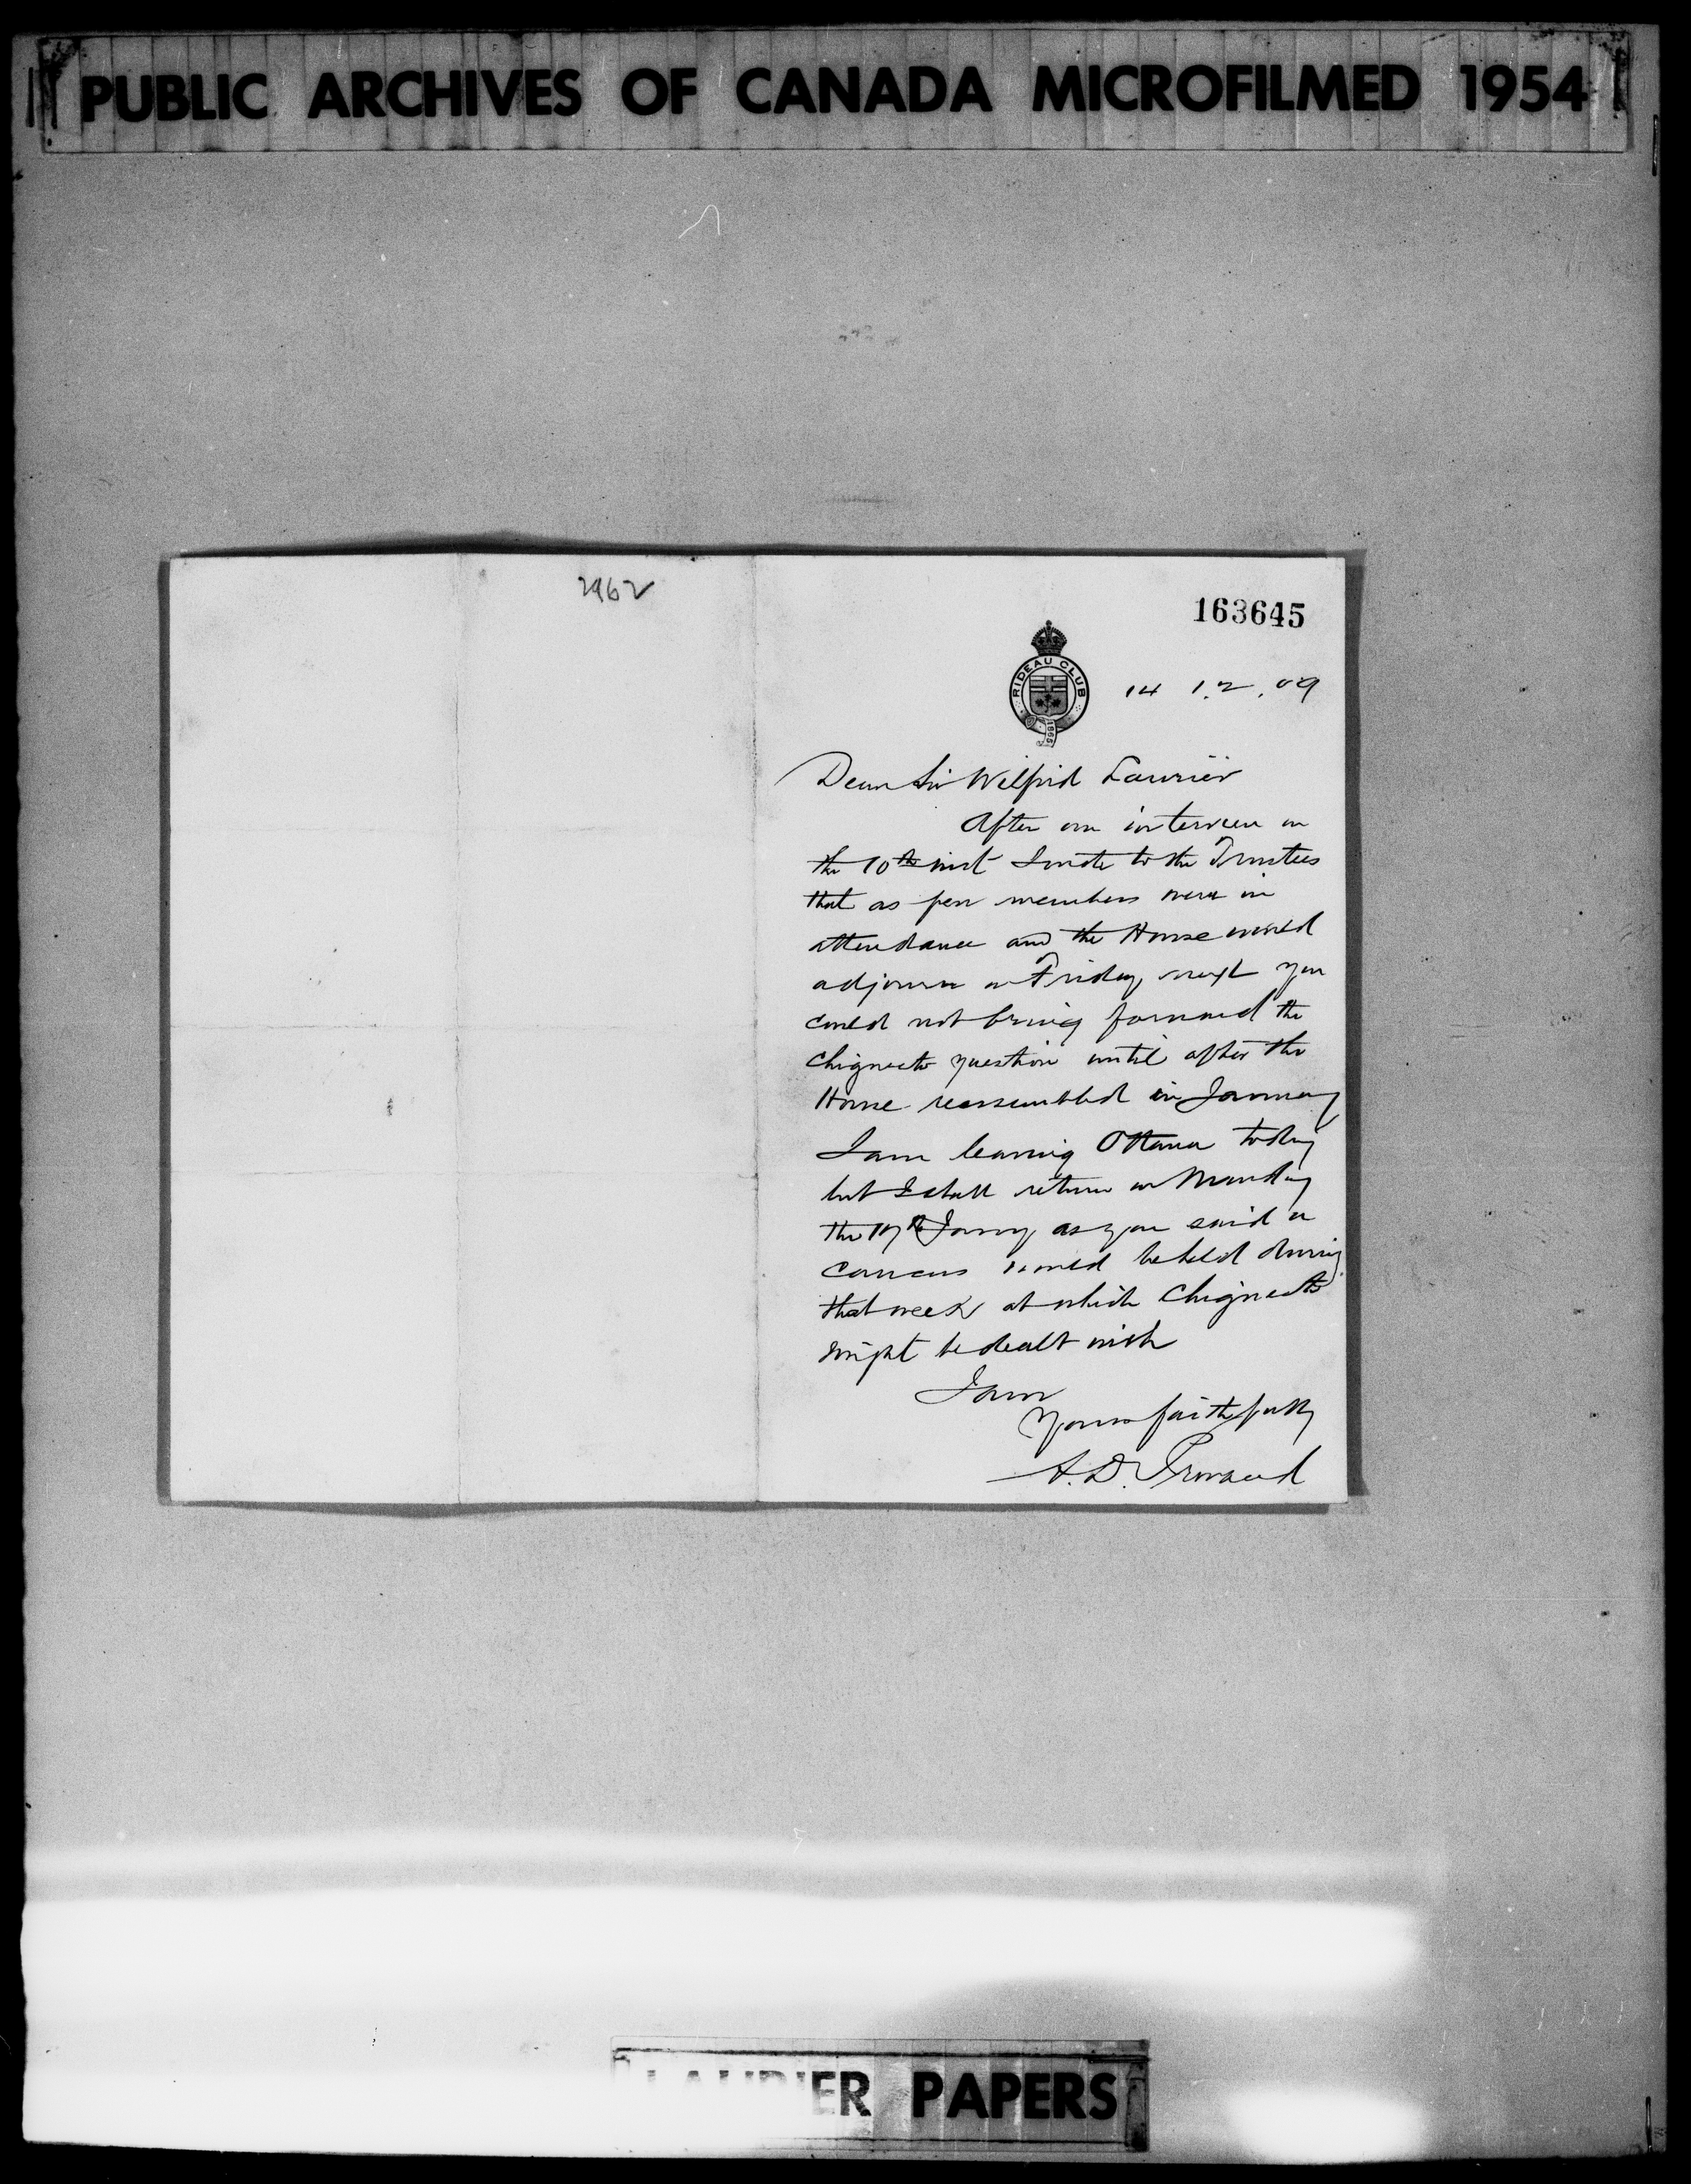 PUBLIC ARCHIVES OF CANADA MICROFILMED 1954
2962
163645
RIDEAU CLUB
1865
14 12.09
Dear Sir Wilfrid Laurier
After our interview on
the 10th inst I wrote to the Trustees
that as few members were in
attendance and the House would
adjourn on Friday next you
could not bring forward the
Chignecto question until after the
House reassembled in January
I am leaving Ottawa today
but I shall return on Monday
the 17th Jany as you said a
caucus would be held during
that week at which Chignecto
might be dealt with
I am
Yours faithfully
A. D. Provand
LAURIER PAPERS